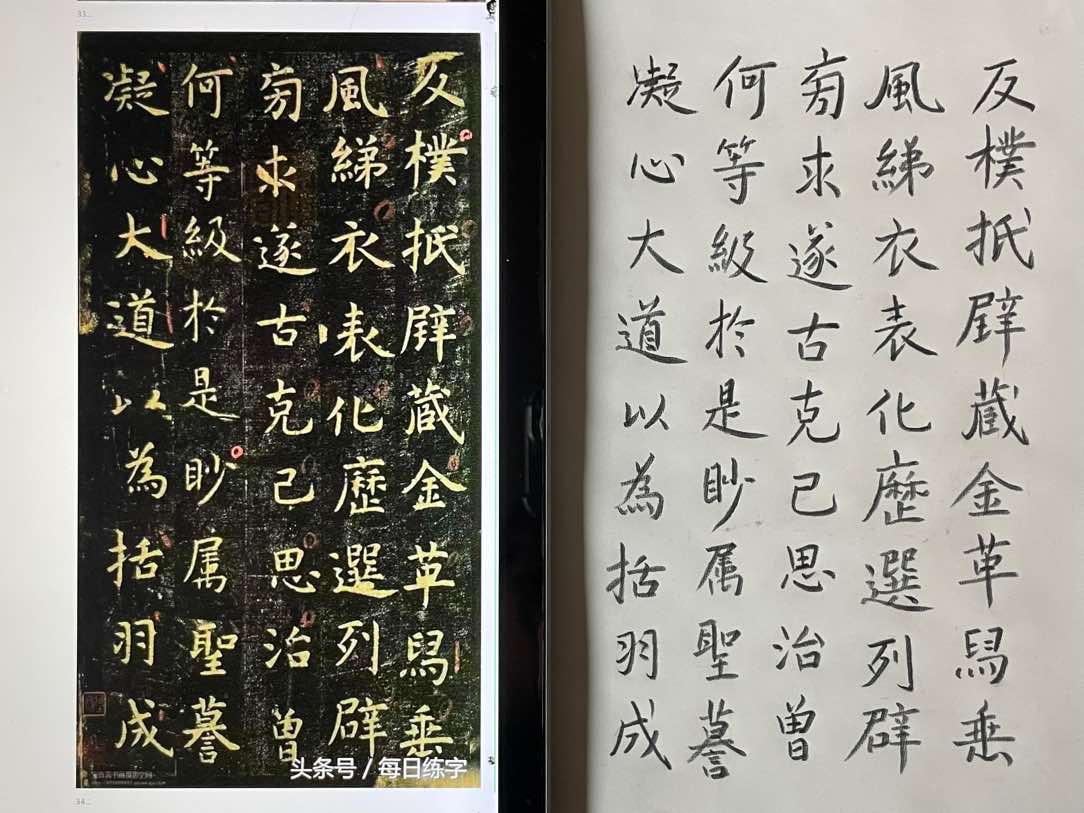 33...
反樸抵璧藏金革舄垂
風綈衣表化歷選列辟
旁求遂古克己思治曾
何等級於是眇属聖謩
凝心大道以為括羽成
头条号 / 每日练字
34...
反樸抵璧藏金革舄垂
風綈衣表化歷選列辟
旁求遂古克己思治曾
何等級於是眇属聖謩
凝心大道以為括羽成